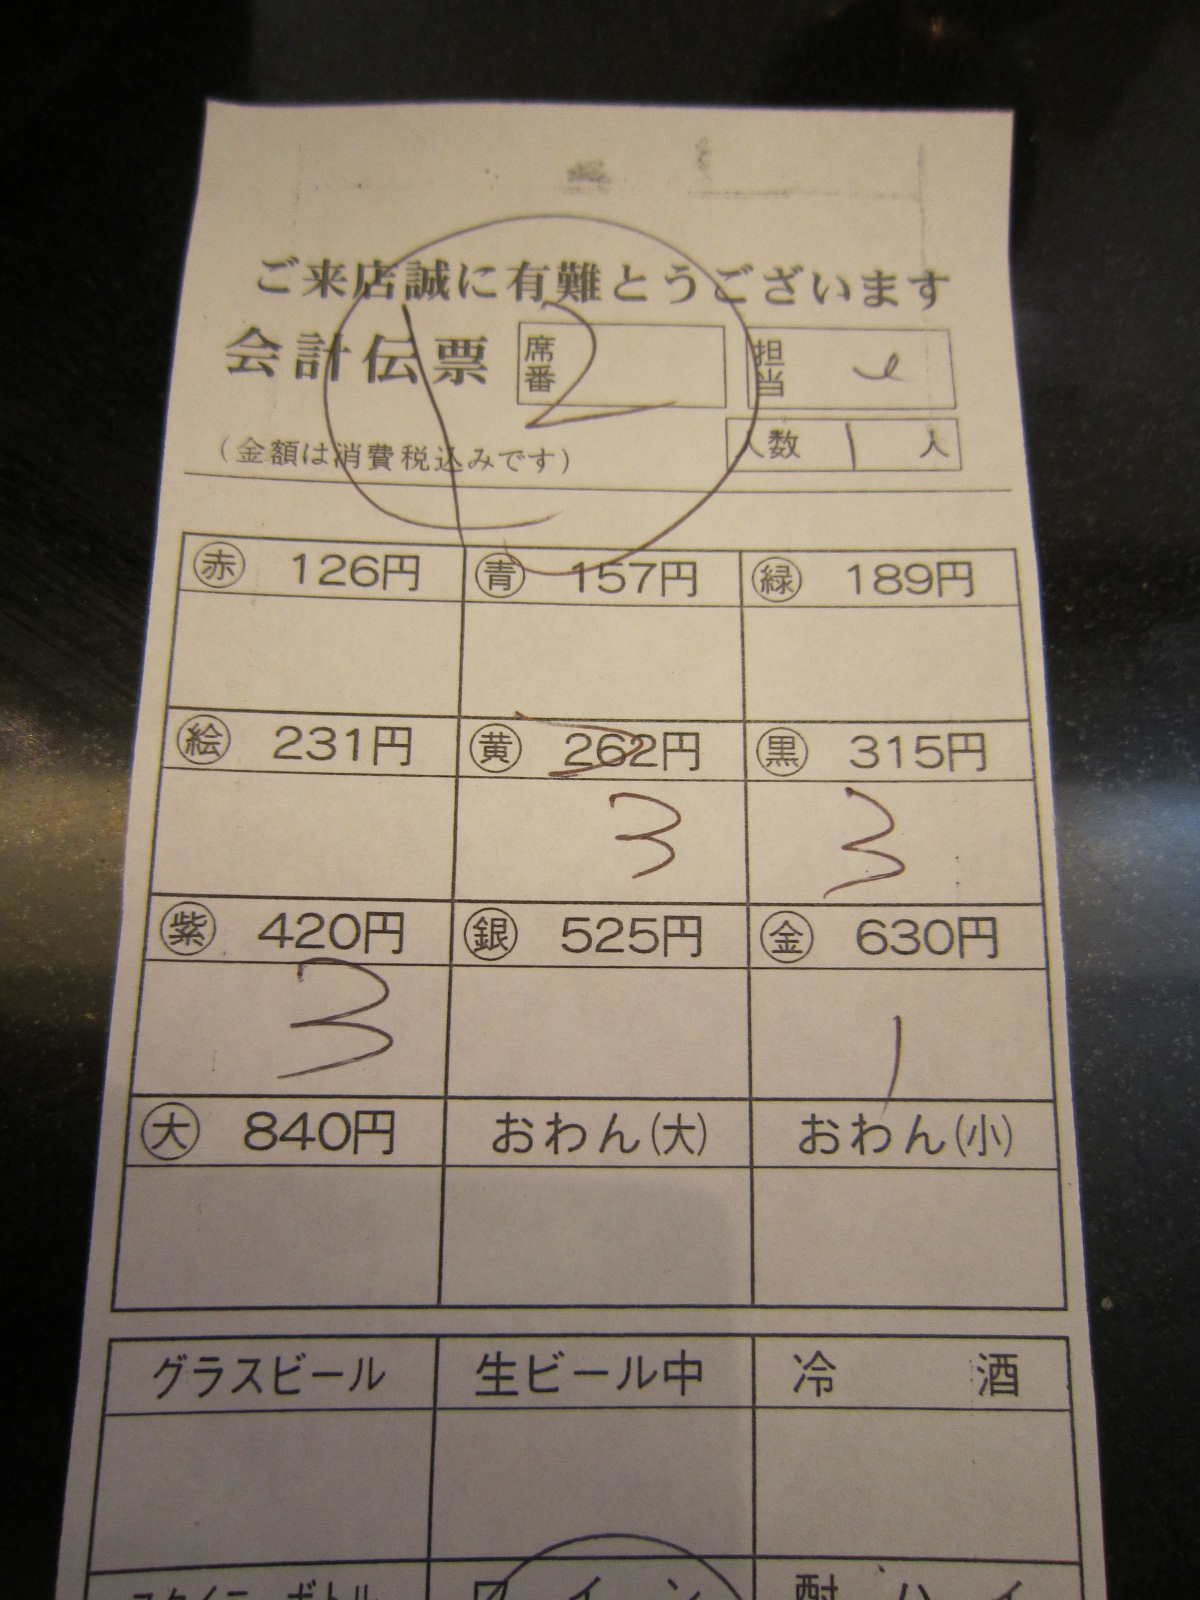 ご来店誠に有難とうございます
会計伝票 席番 12 担当
(金額は消費税込みです) 人数 1 人
赤 126円 青 157円 緑 189円
絵 231円 黄 262円 黒 315円
3 3
紫 420円 銀 525円 金 630円
3 1
大 840円 おわん(大) おわん(小)
グラスビール 生ビール中 冷酒
ワイン 酎ハイ